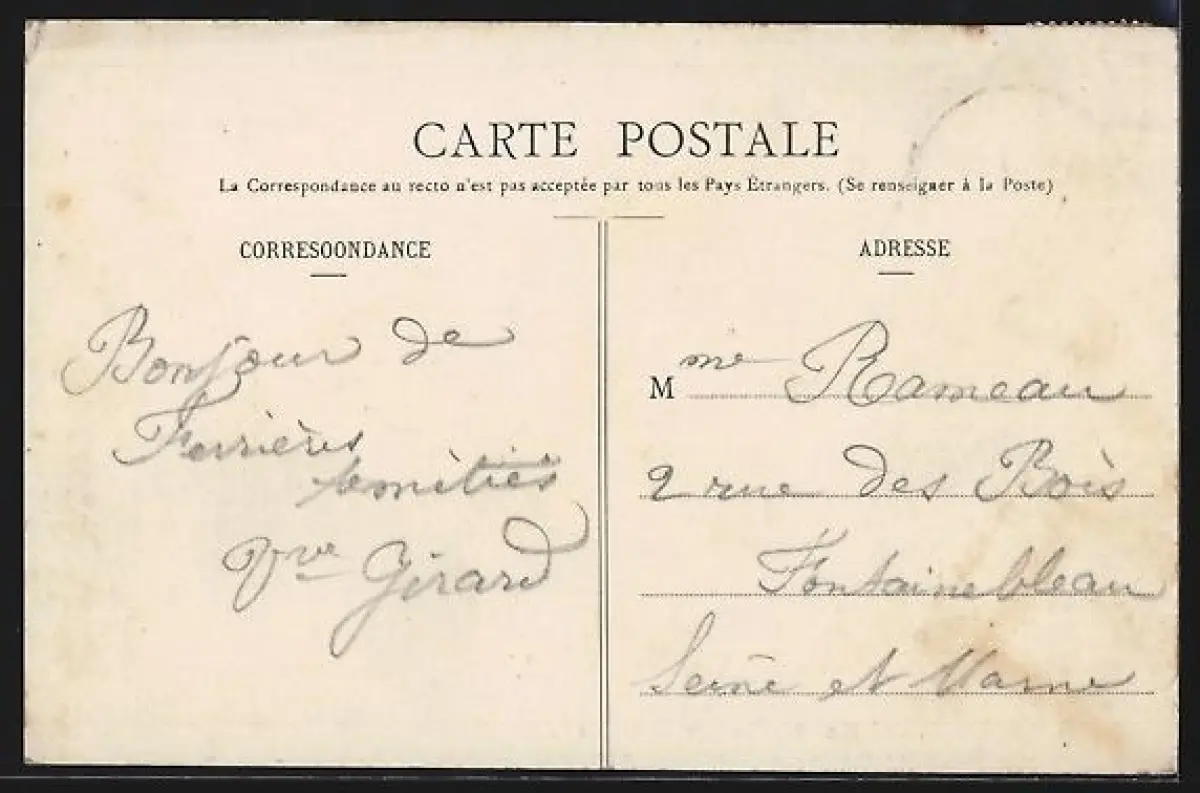 CARTE POSTALE
La Correspondance au recto n'est pas acceptée par tous les Pays Étrangers. (Se renseigner à la Poste)
CORRESOONDANCE
Bonjour de
Ferrières
amitiés
Vve Girard
ADRESSE
Mme Rameau
2 rue des Bois
Fontainebleau
Seine et Marne